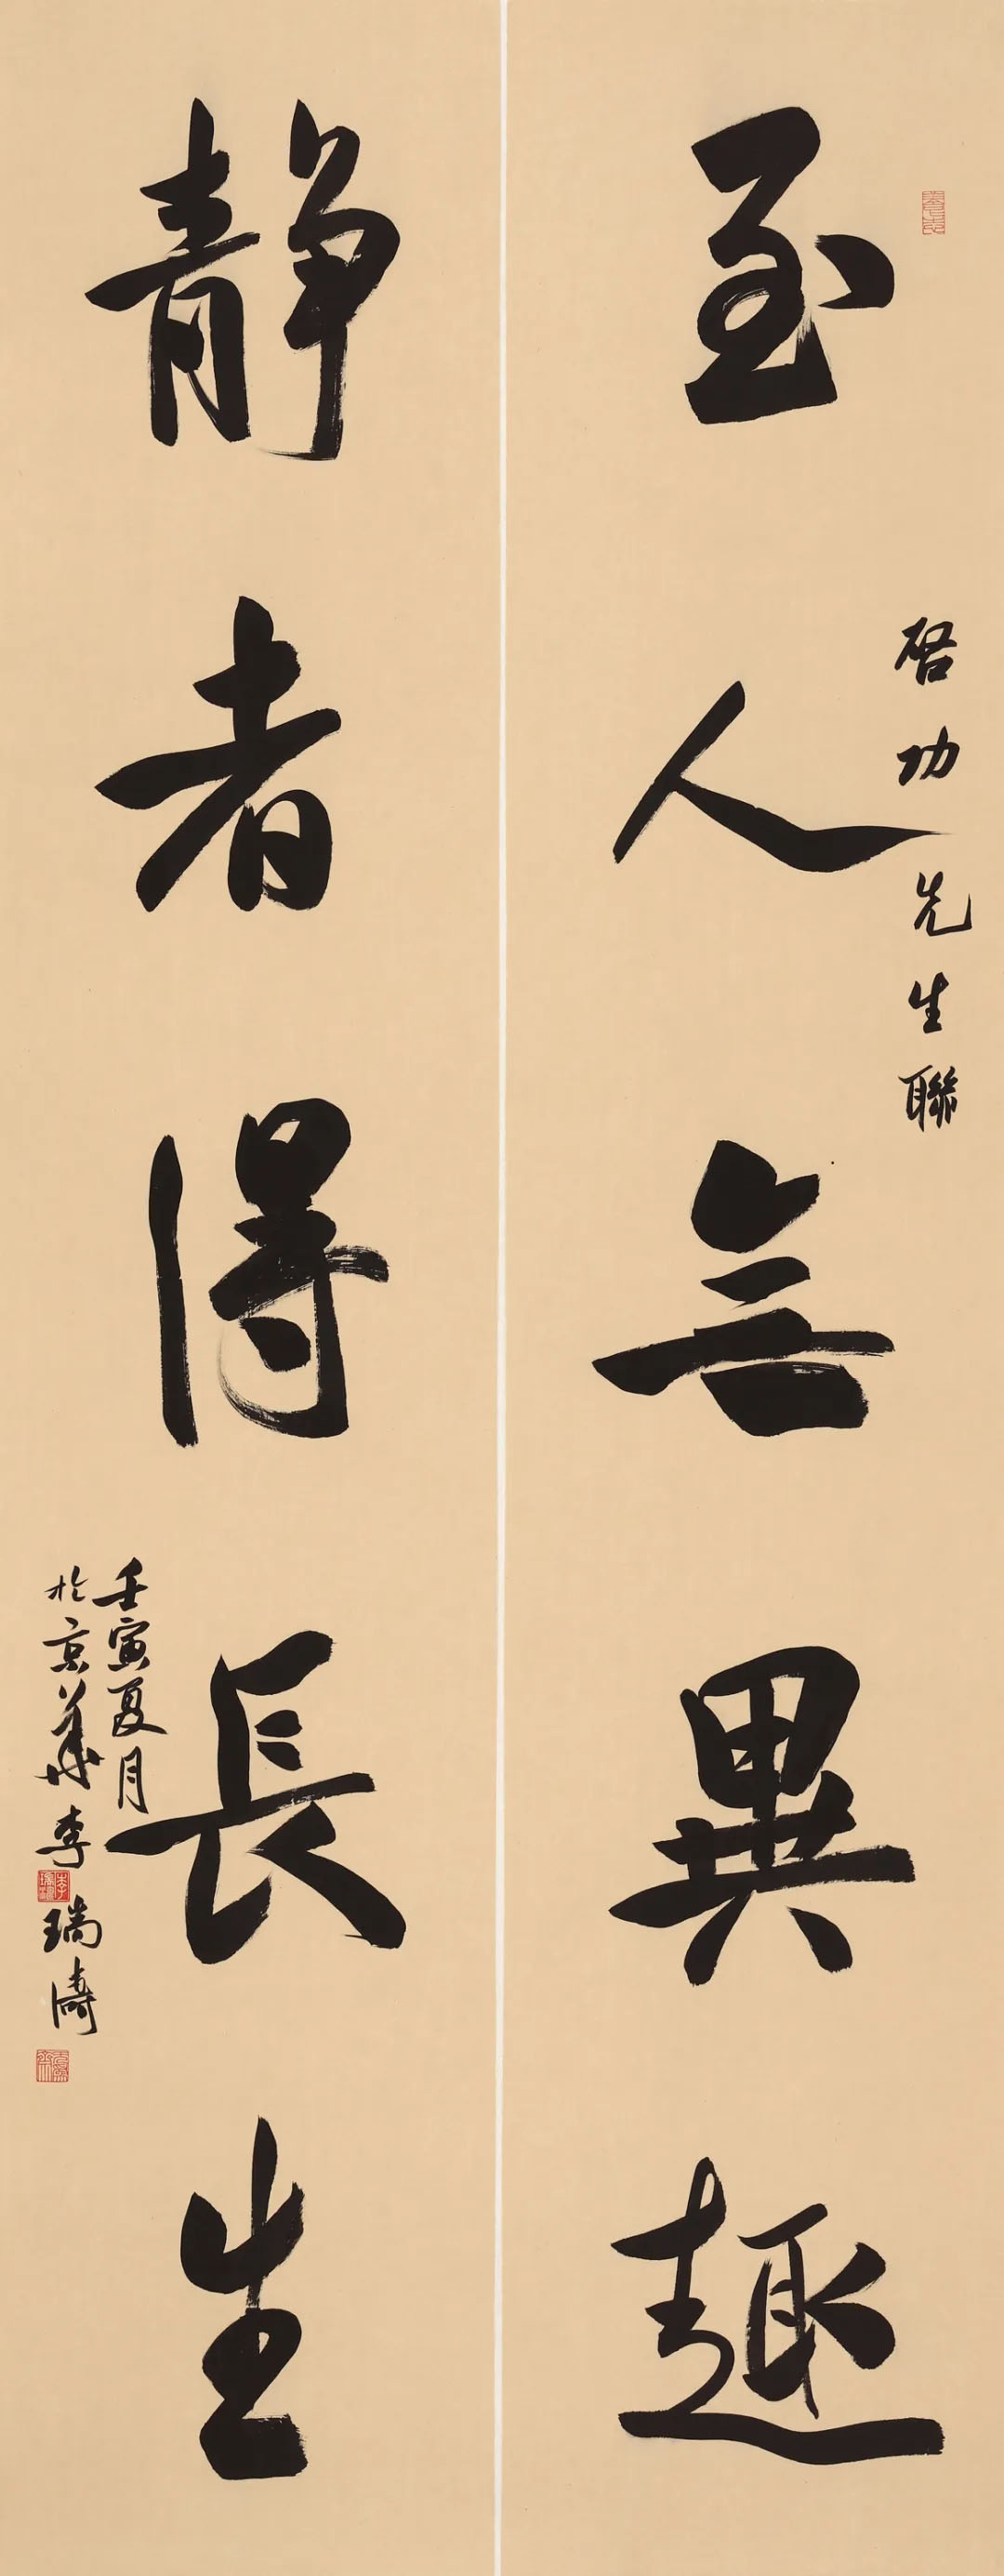 至人無異趣
啓功先生聯
静者得長生
壬寅夏月
於京華李瑞